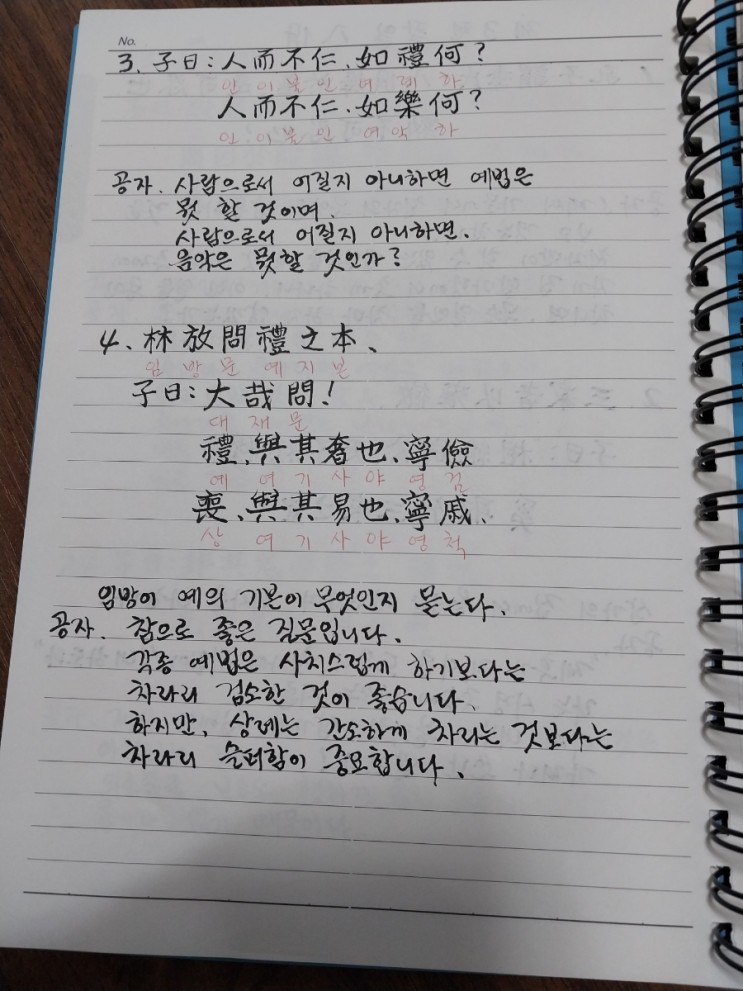 No.
3. 子曰: 人而不仁、如禮何?
인 이 불 인 여 례 하
人而不仁、如樂何?
인 이 불 인 여 악 하
공자. 사람으로서 어질지 아니하면 예법은
뭣 할 것이며.
사람으로서 어질지 아니하면.
음악은 뭣할 것인가?
4. 林放問禮之本、
임 방 문 예 지 본
子曰: 大哉問!
대 재 문
禮、與其奢也、寧儉
예 여 기 사 야 영 검
喪、與其易也、寧戚、
상 여 기 사 야 영 척
임방이 예의 기본이 무엇인지 묻는다.
공자. 참으로 좋은 질문입니다.
각종 예법은 사치스럽게 하기보다는
차라리 검소한 것이 좋습니다.
하지만, 상례는 간소하게 차리는 것보다는
차라리 슬퍼함이 중요합니다.